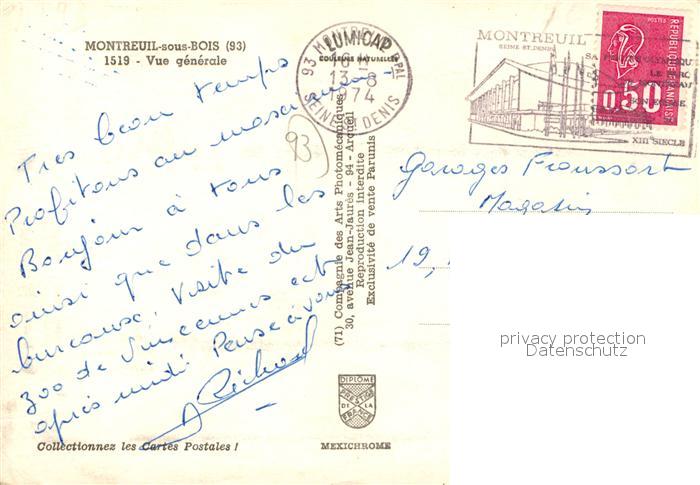 MONTREUIL-sous-BOIS (93)
1519 - Vue générale
Très beau temps
Profitons au maximum
Bonjour à tous
ainsi que dans les
bureaux. Visite du
zoo de Vincennes cet
après midi Pense à vous
Collectionnez les Cartes Postales !
LUMICAP
COULEURS NATURELLES
93 MONTREUIL PPAL
13-8
1974
SEINE ST DENIS
93
(71) Compagnie des Arts Photomécaniques
30, avenue Jean-Jaurès - 94 - Arcueil
Reproduction Interdite
Exclusivité de vente Parunis
DIPLOME
PRESTIGE
DE LA
FRANCE
MEXICHROME
MONTREUIL
SEINE ST.DENIS
SA
LE PARC
SON EGLISE
XIII SIECLE
POSTES
REPUBLIQUE FRANCAISE
0,50
Garages Froussart
Magasin
19,
privacy protection
Datenschutz